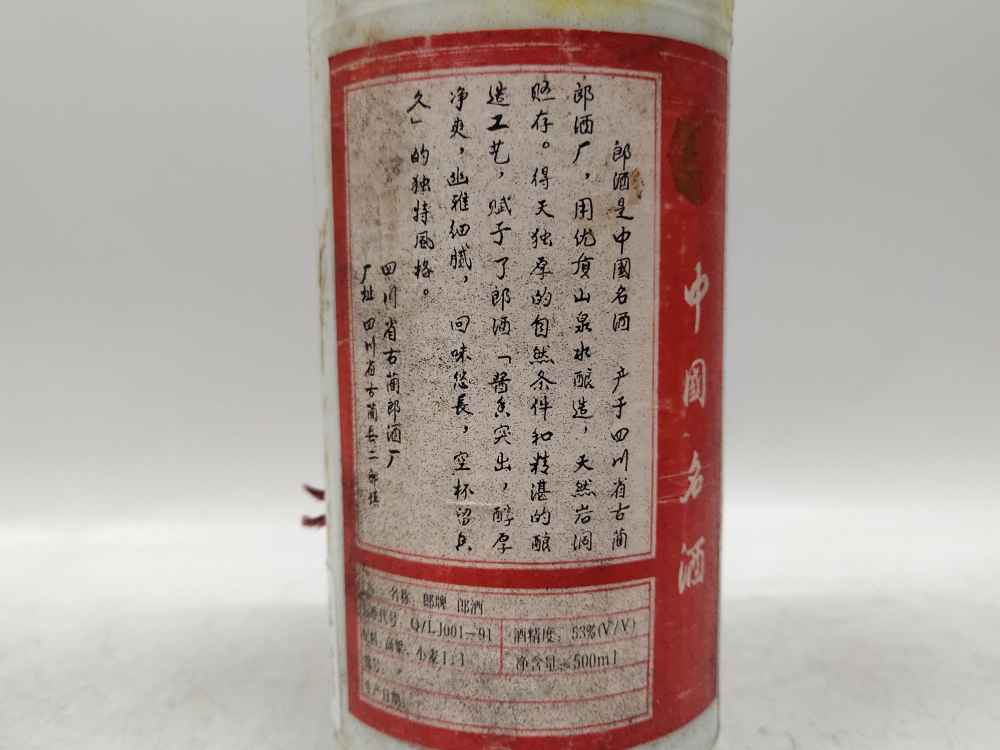 郎酒是中國名酒 产于四川省古蔺
郎酒厂，用优质山泉水酿造，天然岩洞
贮存。得天独厚的自然条件和精湛的酿
造工艺，赋于了郎酒「酱香突出，醇厚
净爽，幽雅细腻，回味悠長，空杯留香
久」的独特风格。
四川省古蔺郎酒厂
厂址 四川省古蔺县二郎镇
中國名酒
名称：郎牌 郎酒
代号：Q/LJ001-91
酒精度：53%(V/V)
原料：高粱、小麦1:1
净含量：500ml
生产日期：